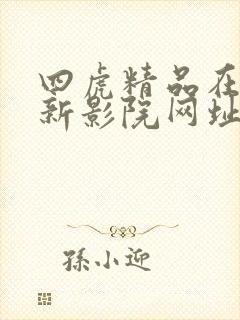 四虎精品在
新影院网址
孫小迎